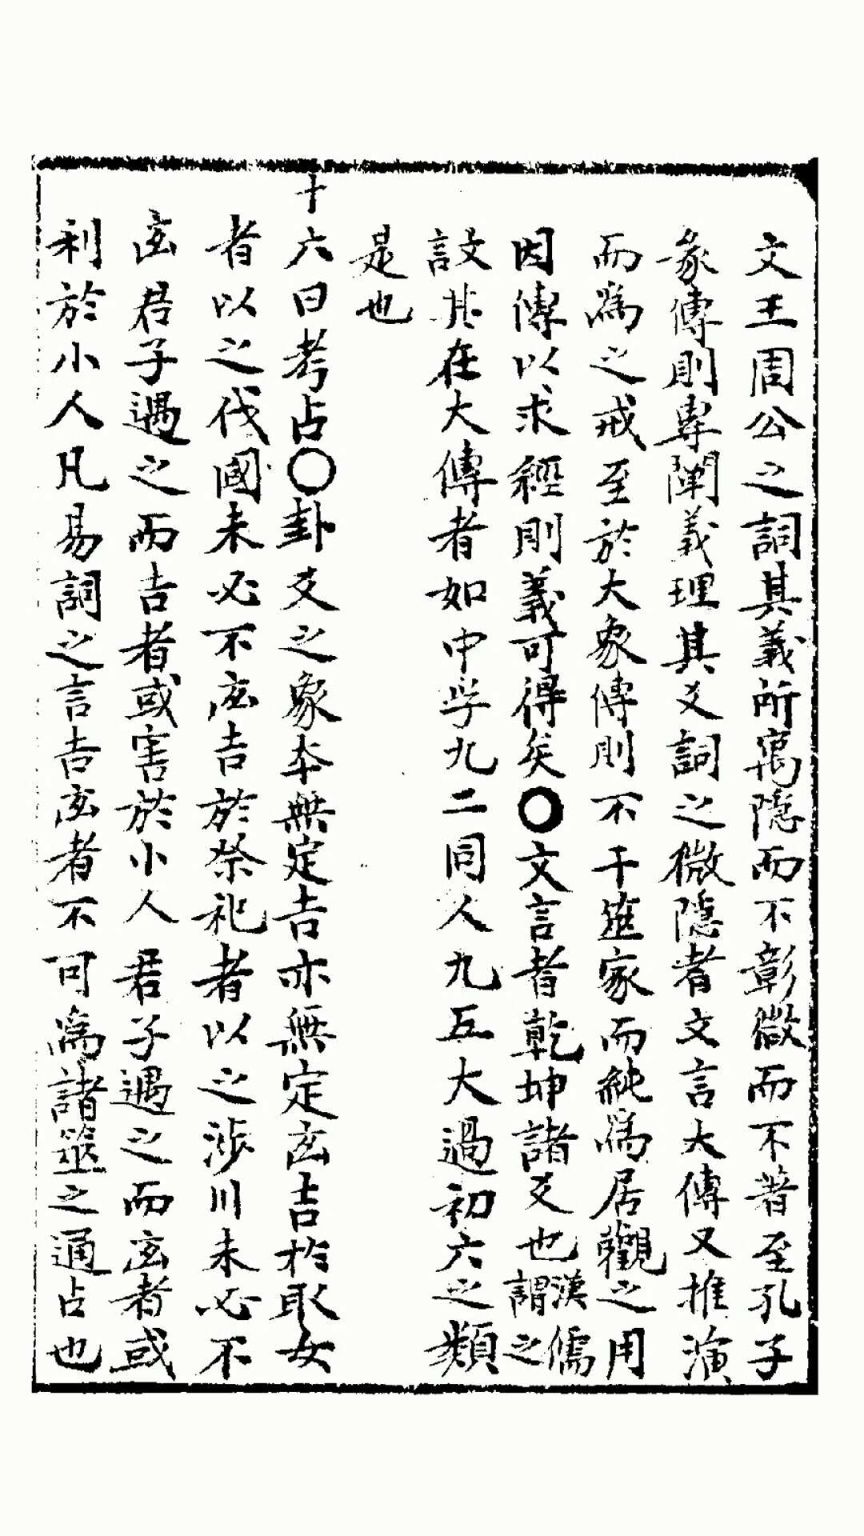 文王周公之詞其義所寓隱而不彰微而不著至孔子
彖傳則專闡義理其爻詞之微隱者文言大傳又推演
而爲之戒至於大象傳則不干筮家而純爲居觀之用
因傳以求經則義可得矣○文言者乾坤諸爻也漢儒謂之
設其在大傳者如中孚九二同人九五大過初六之類
是也
十六曰考占○卦爻之象本無定吉亦無定㐫吉於取女
者以之伐國未必不㐫吉於祭祀者以之涉川未必不
㐫君子遇之而吉者或害於小人君子遇之而㐫者或
利於小人凡易詞之言吉㐫者不可爲諸筮之通占也